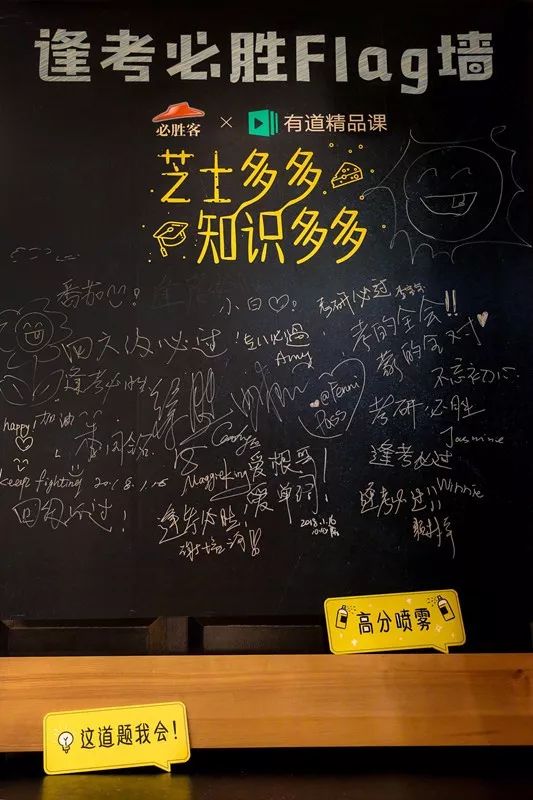 逢考必胜Flag墙
必胜客 × 有道精品课
芝士多多
知识多多
小白
考研必过
四六级必过！
Amy
考的全会!!
蒙的全对
不忘初心
逢考必胜
@Fenni
考研必胜
Jasmine
happy!
加油
逢考必过
keep fighting 2018.1.16
爱根号
爱单词!
逢考必过!!
Winnie
逢考必胜!
2018.1.16
高分喷雾
这道题我会!